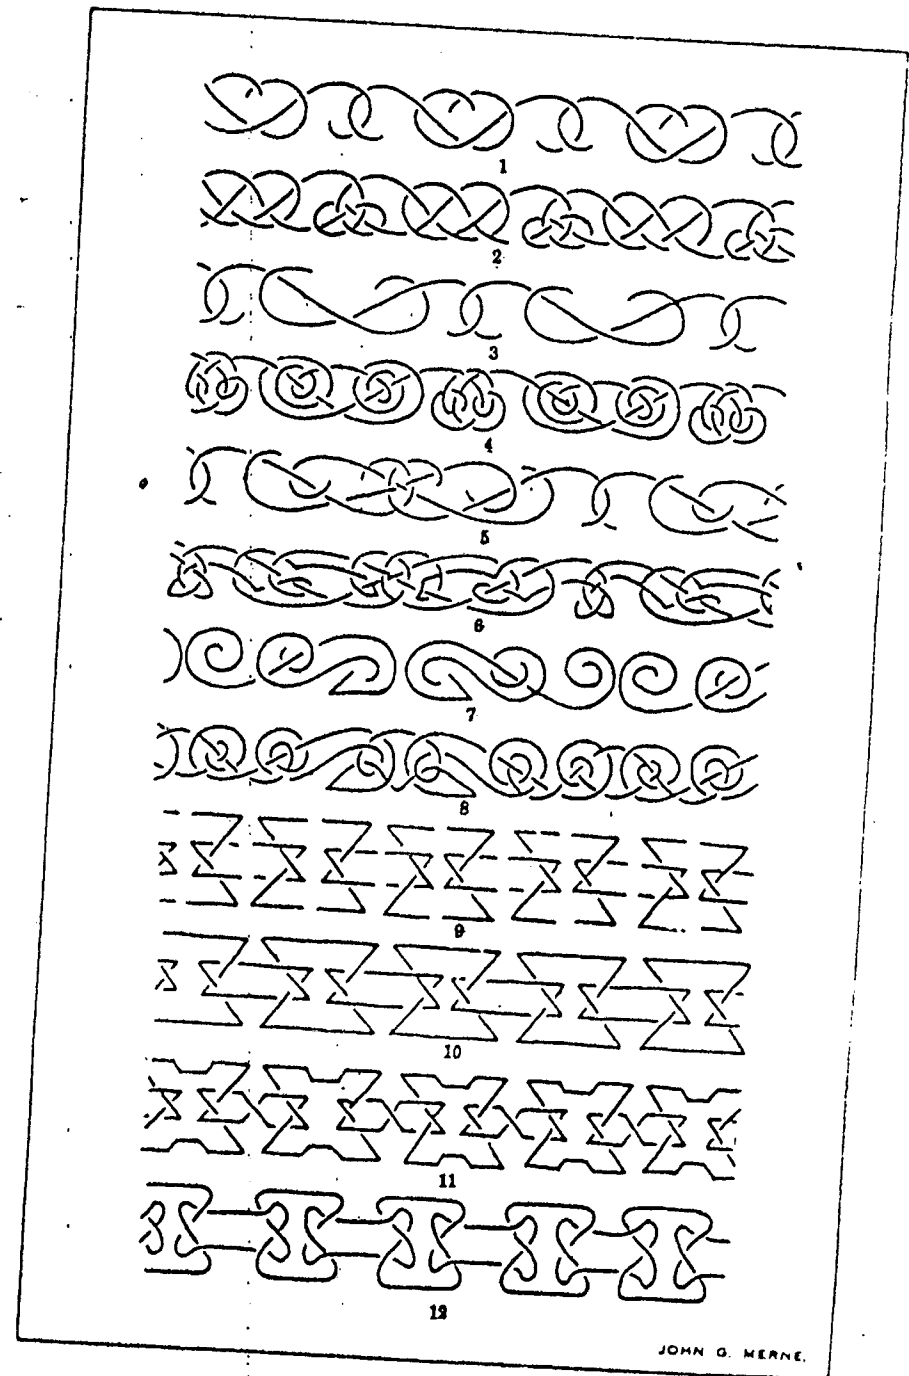 1
2
3
4
5
6
7
8
9
10
11
12
JOHN G. MERNE.